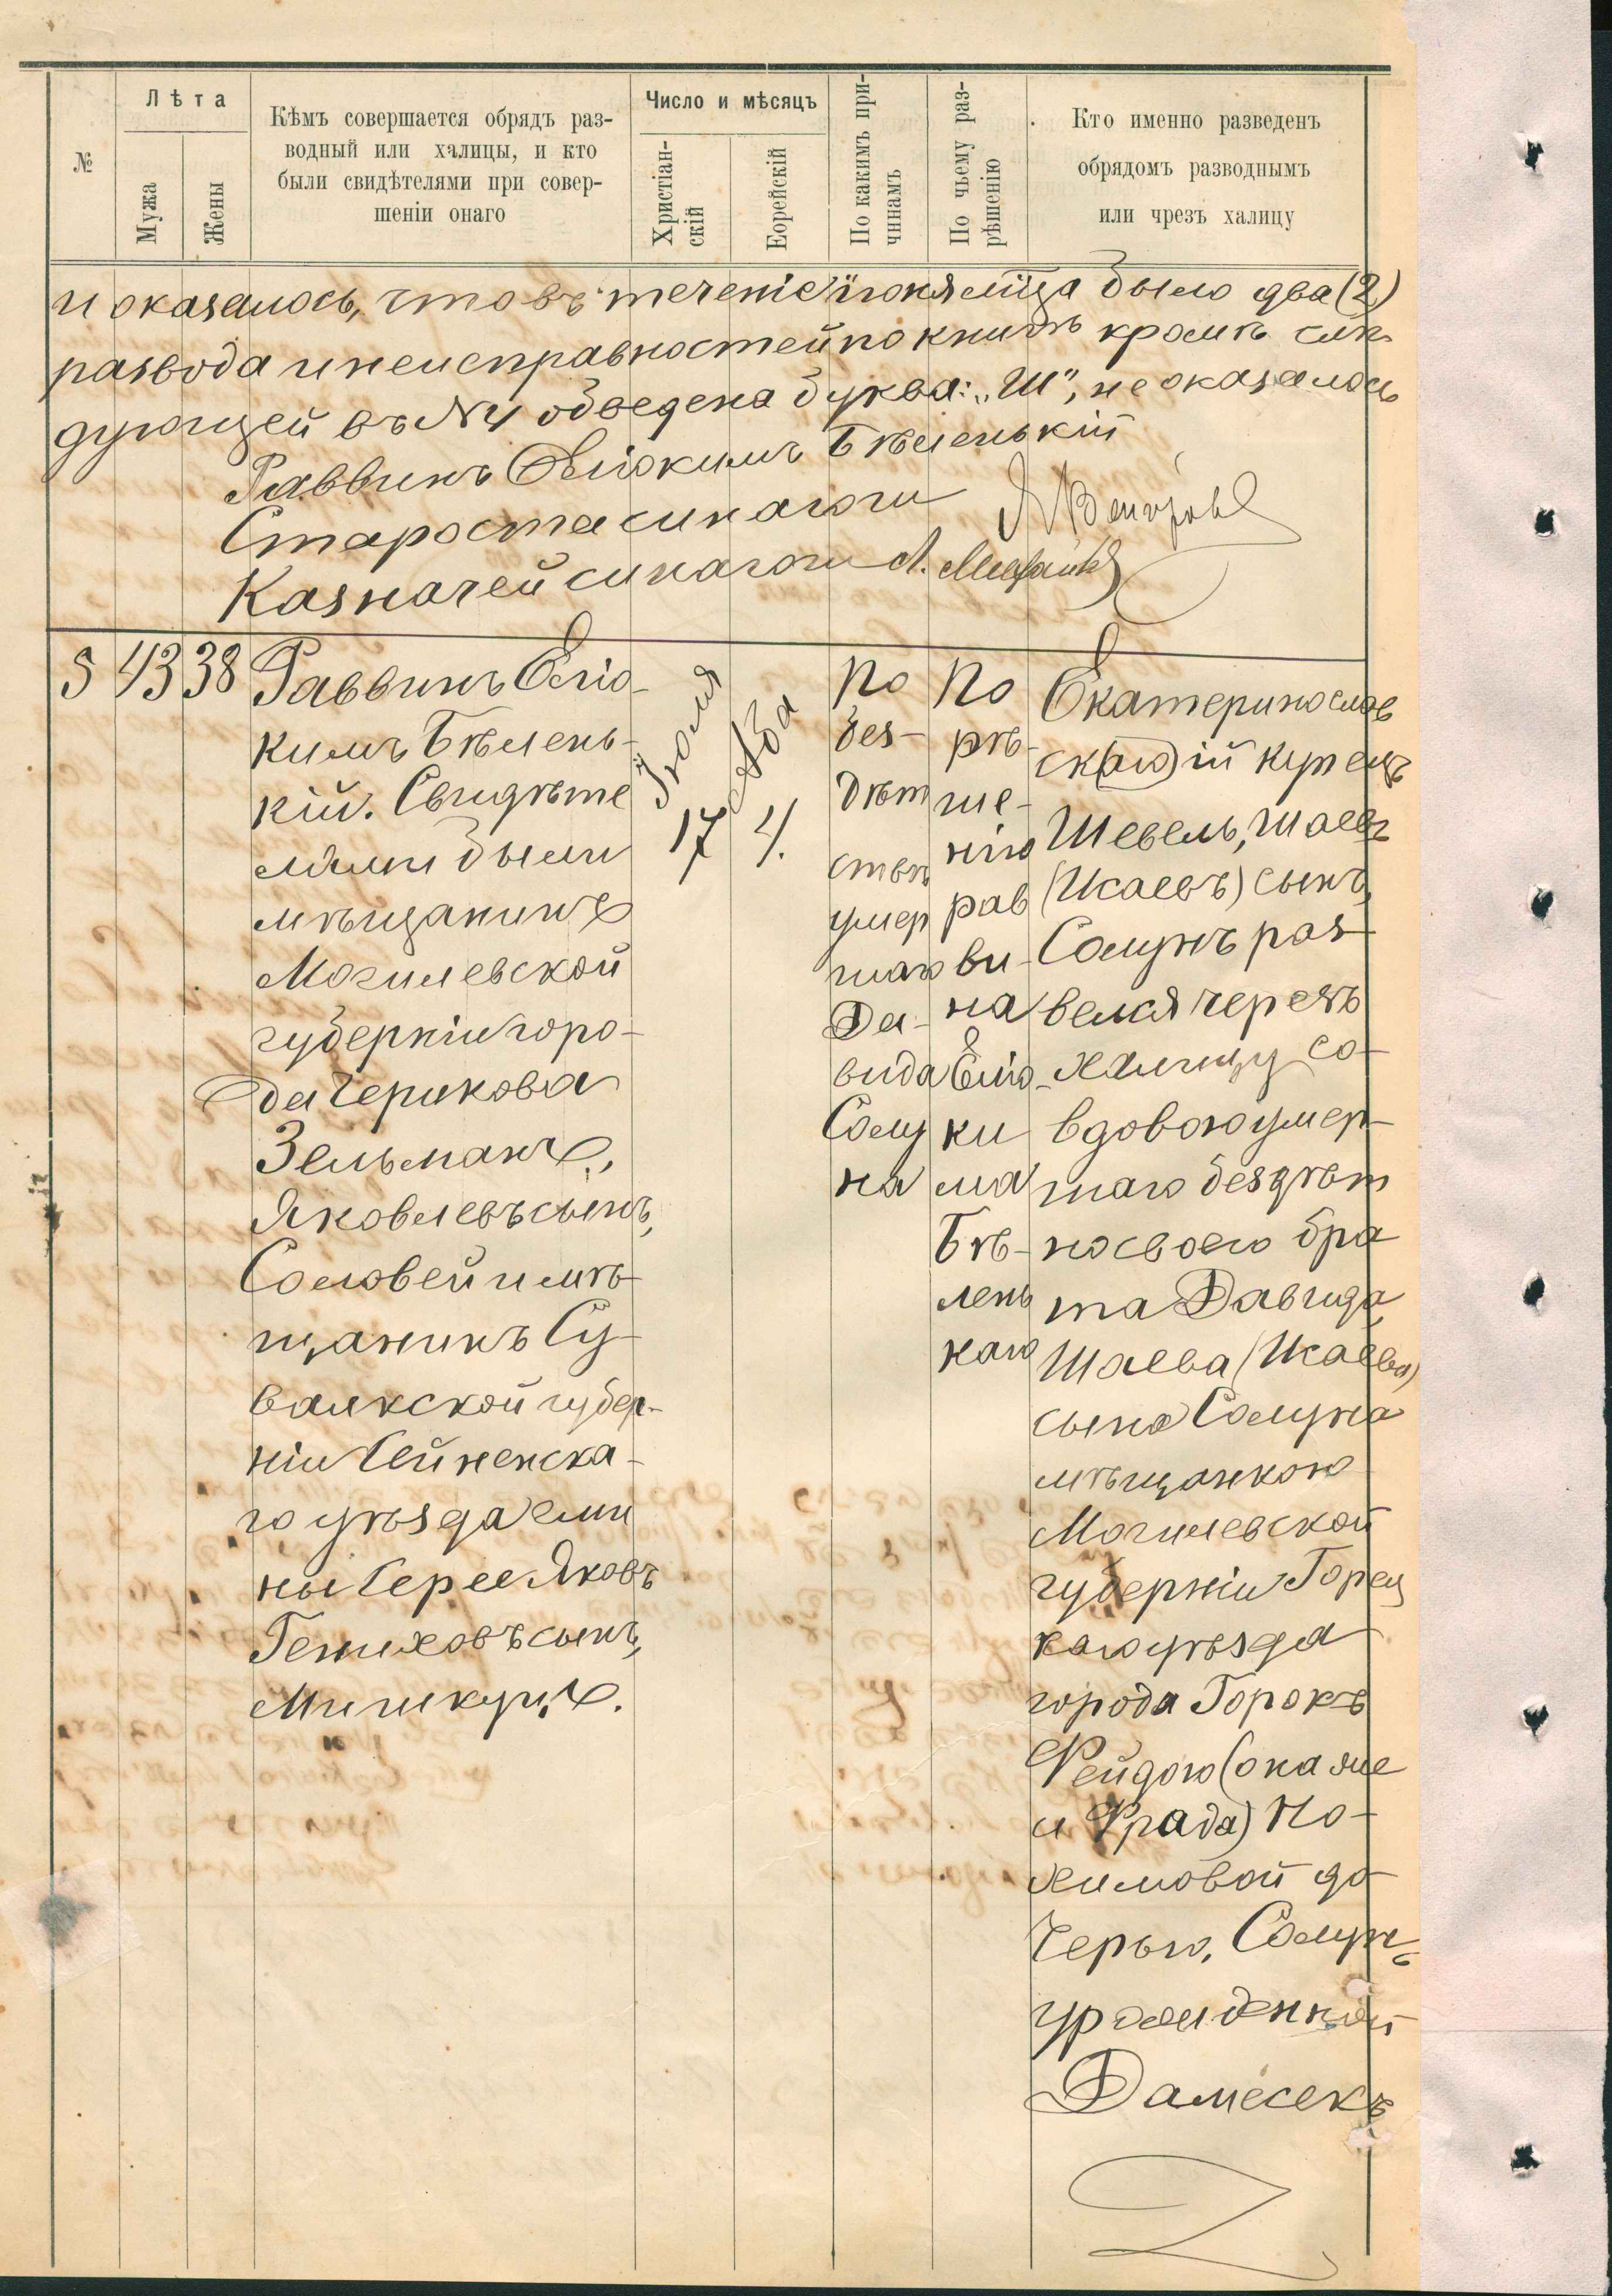 №
Лѣта
Мужа
Жены
Кѣмъ совершается обрядъ раз-
водный или халицы, и кто
были свидѣтелями при совер-
шеніи онаго
Число и мѣсяцъ
Христіан-
скій
Еврейскій
По какимъ при-
чинамъ
По чьему раз-
рѣшенію
Кто именно разведенъ
обрядомъ разводнымъ
или чрезъ халицу
и оказалось, что въ теченіе іюня м͠ца было два (2)
развода и неисправностей по книгѣ кромѣ слѣ-
дующей въ №4 обведена буква: „Ш", не оказалось
Раввинъ Еліокимъ Бѣленькій
Староста синагоги
Казначей синагоги
5
43
38
Раввинъ Еліо-
кимъ Бѣлень-
кій. Свидѣте
лями были
мѣщанинъ
Могилевской
губерніи горо-
да Черикова
Зельманъ,
Яковлевъ сынъ,
Соловей и мѣ-
щанинъ Су-
валкской губер-
ніи Сейненска-
го уѣзда гми
ны Серее Яковъ
Гениховъ сынъ,
Мишкуцъ.
Іюля
17
Аба
4.
По
без-
дѣт
ств.
умер
шаго
Да-
вида
Солу
на
По
рѣ-
ше-
нію
рав
ви-
на
Еліо-
ки
ма
Бѣ-
лень
каго
Екатеринослав
ск(аго)ій купецъ
Шевель, Шаевъ
(Исаевъ) сынъ,
Солунъ раз-
велся черезъ
халицу со-
вдовою умер-
шаго бездѣт
но своего бра
та Давида,
Шаева (Исаева)
сына Солуна
мѣщанкою
Могилевской
губерніи Горец
каго уѣзда
города Горокъ
Фейдою (она же
и Фрада) Но-
химовой до-
черью, Солунъ
урожденной
Дамесекъ